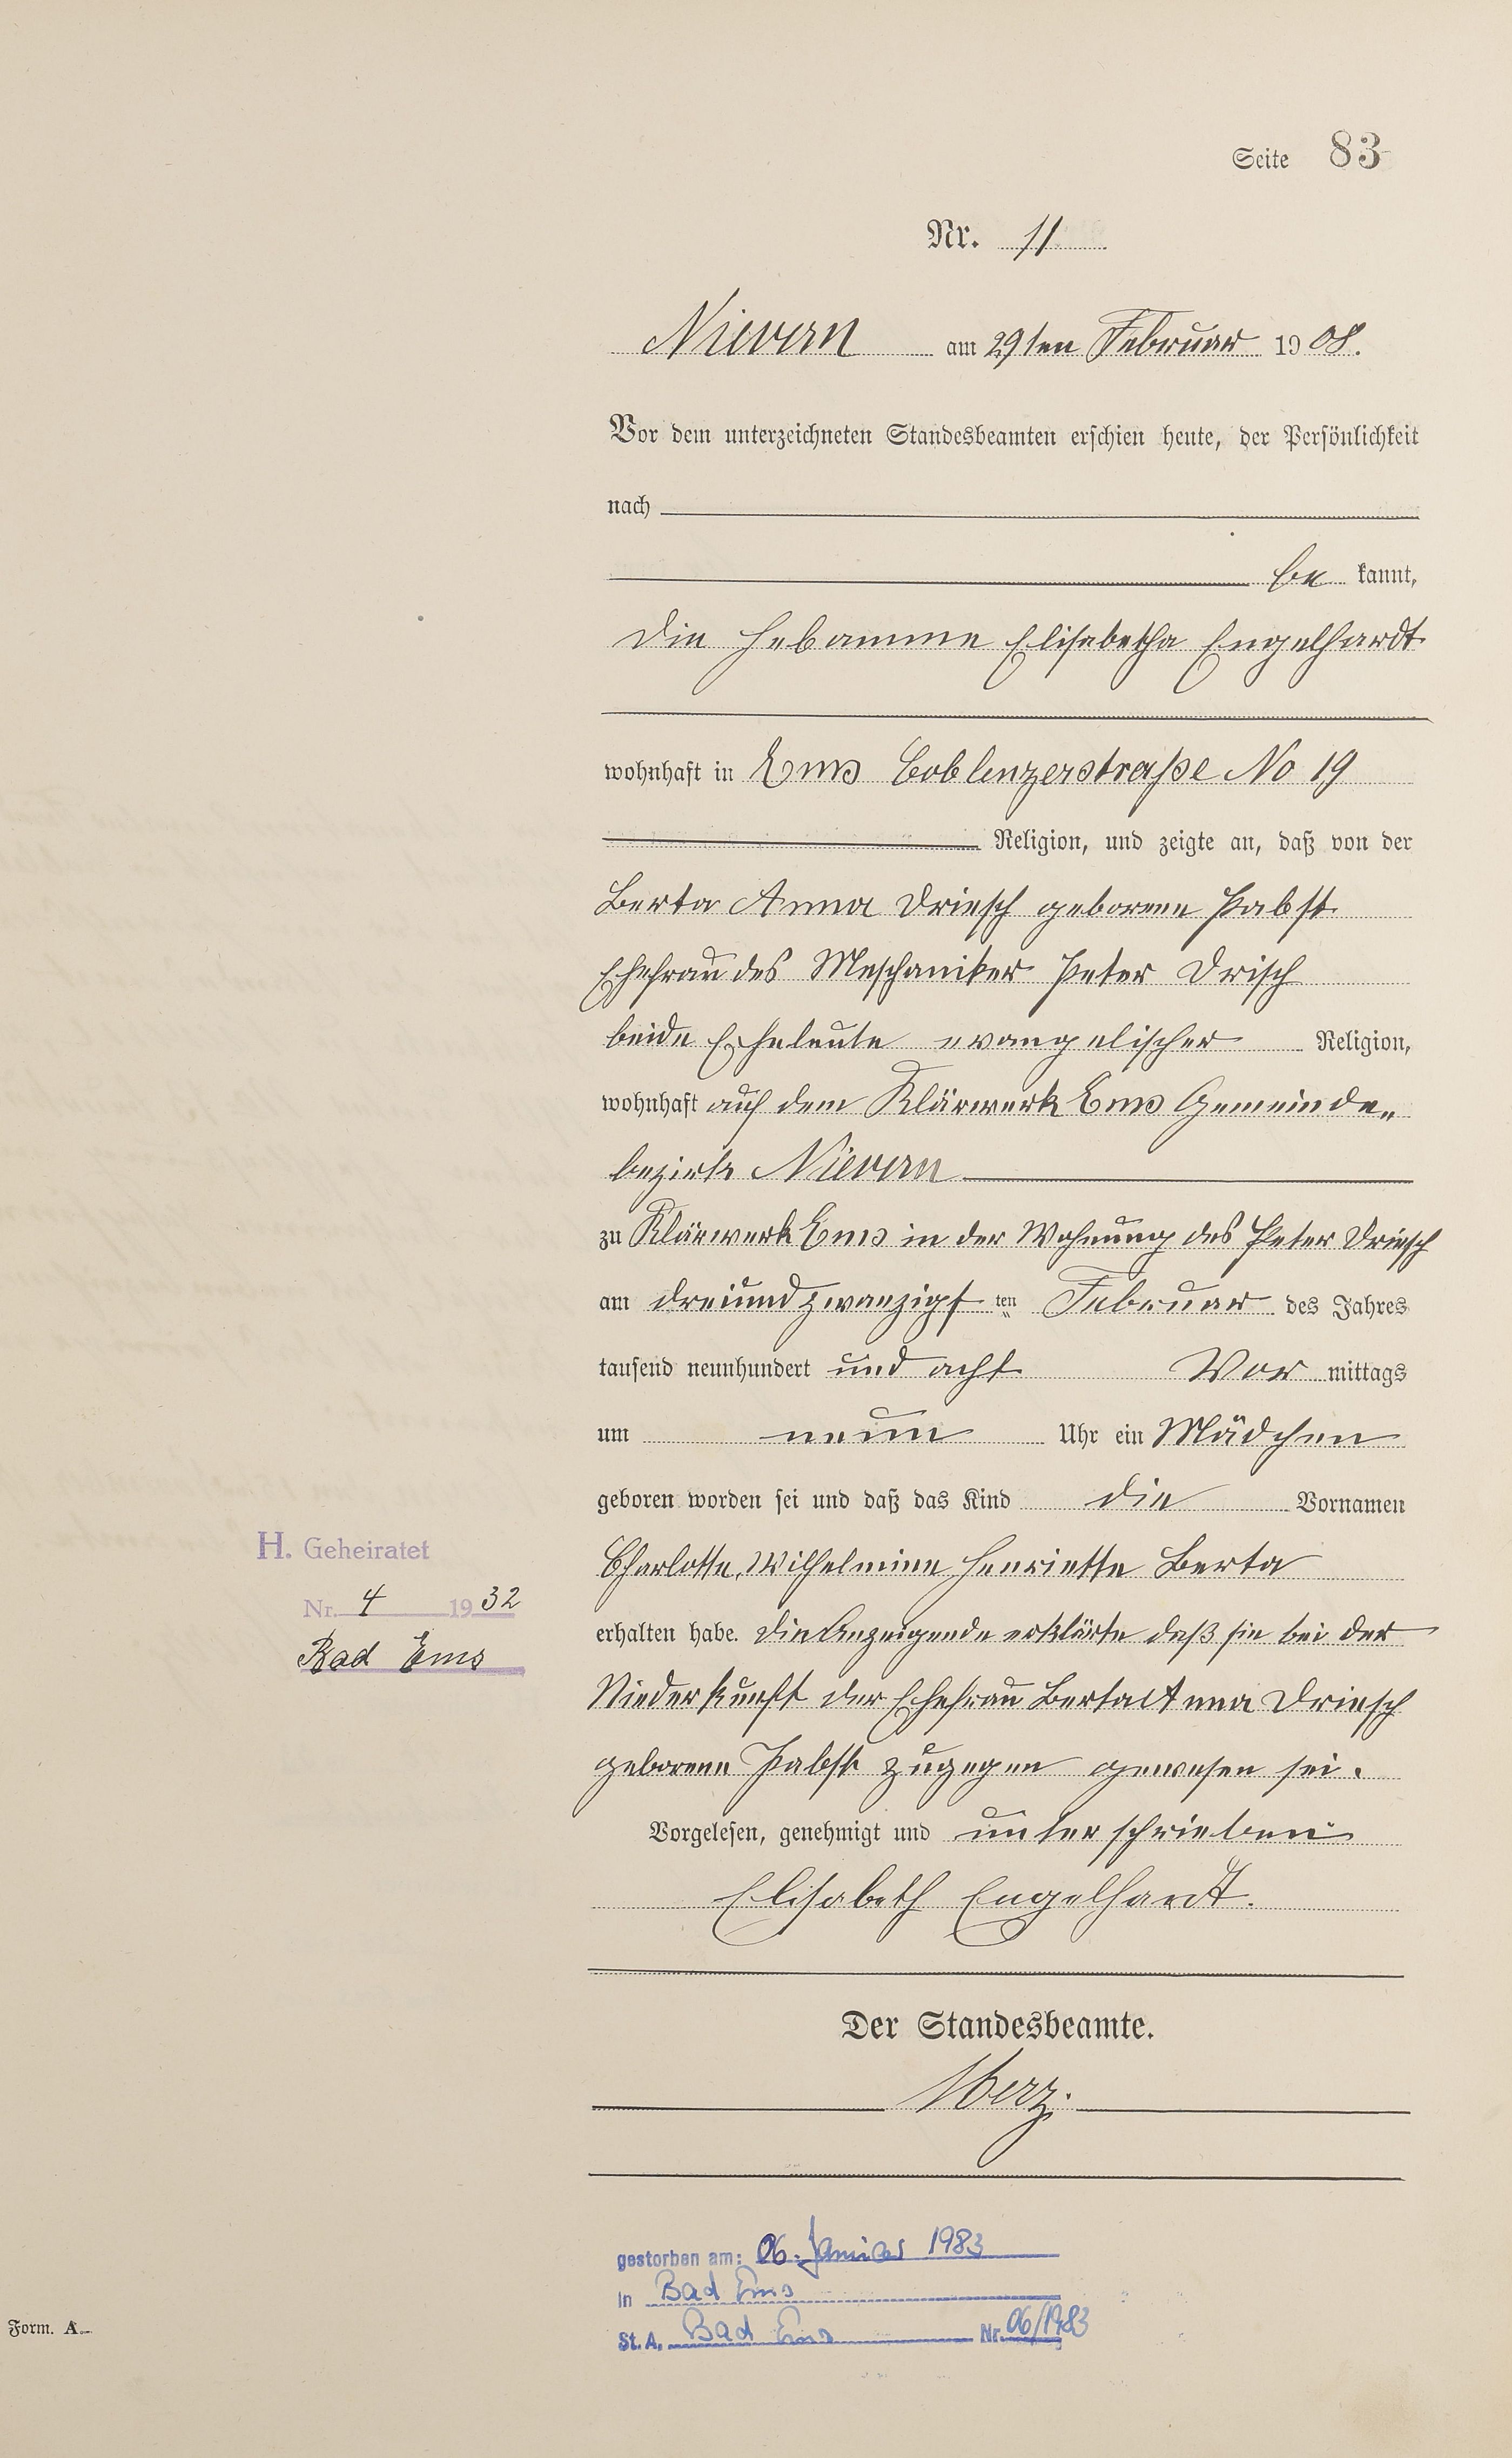 Seite 83
Nr. 11
Nievern am 29ten Februar 1908.
Vor dem unterzeichneten Standesbeamten erschien heute, der Persönlichkeit
nach
be kannt,
die Hebamme Elisabetha Engelhardt
wohnhaft in Ems Coblenzerstraße No 19
Religion, und zeigte an, daß von der
Berta Anna Driesch geborene Pabst
Ehefrau des Meschaniker Peter Drisch
beide Eheleute evangelischer Religion,
wohnhaft auf dem Klärwerk Ems Gemeinde„
bezirk Nievern
zu Klärwerk Ems in der Wohnung des Peter Driesch
am dreiundzwanzigs ten Februar des Jahres
tausend neunhundert und acht Vor mittags
um neun Uhr ein Mädchen
geboren worden sei und daß das Kind die Vornamen
Charlotte, Wilhelmine Henriette Berta
erhalten habe. Die Anzeigende erklärte daß sie bei der
Niederkunft der Ehefrau Berta Anna Driesch
geborene Pabst zugegen gewesen sei.
Vorgelesen, genehmigt und unterschrieben
Elisabeth Engelhardt.
Der Standesbeamte.
H. Geheiratet
Nr. 4 1932
Bad Ems
gestorben am: 06. Januar 1983
in Bad Ems
St. A. Bad Ems Nr. 06/1983
Form. A.